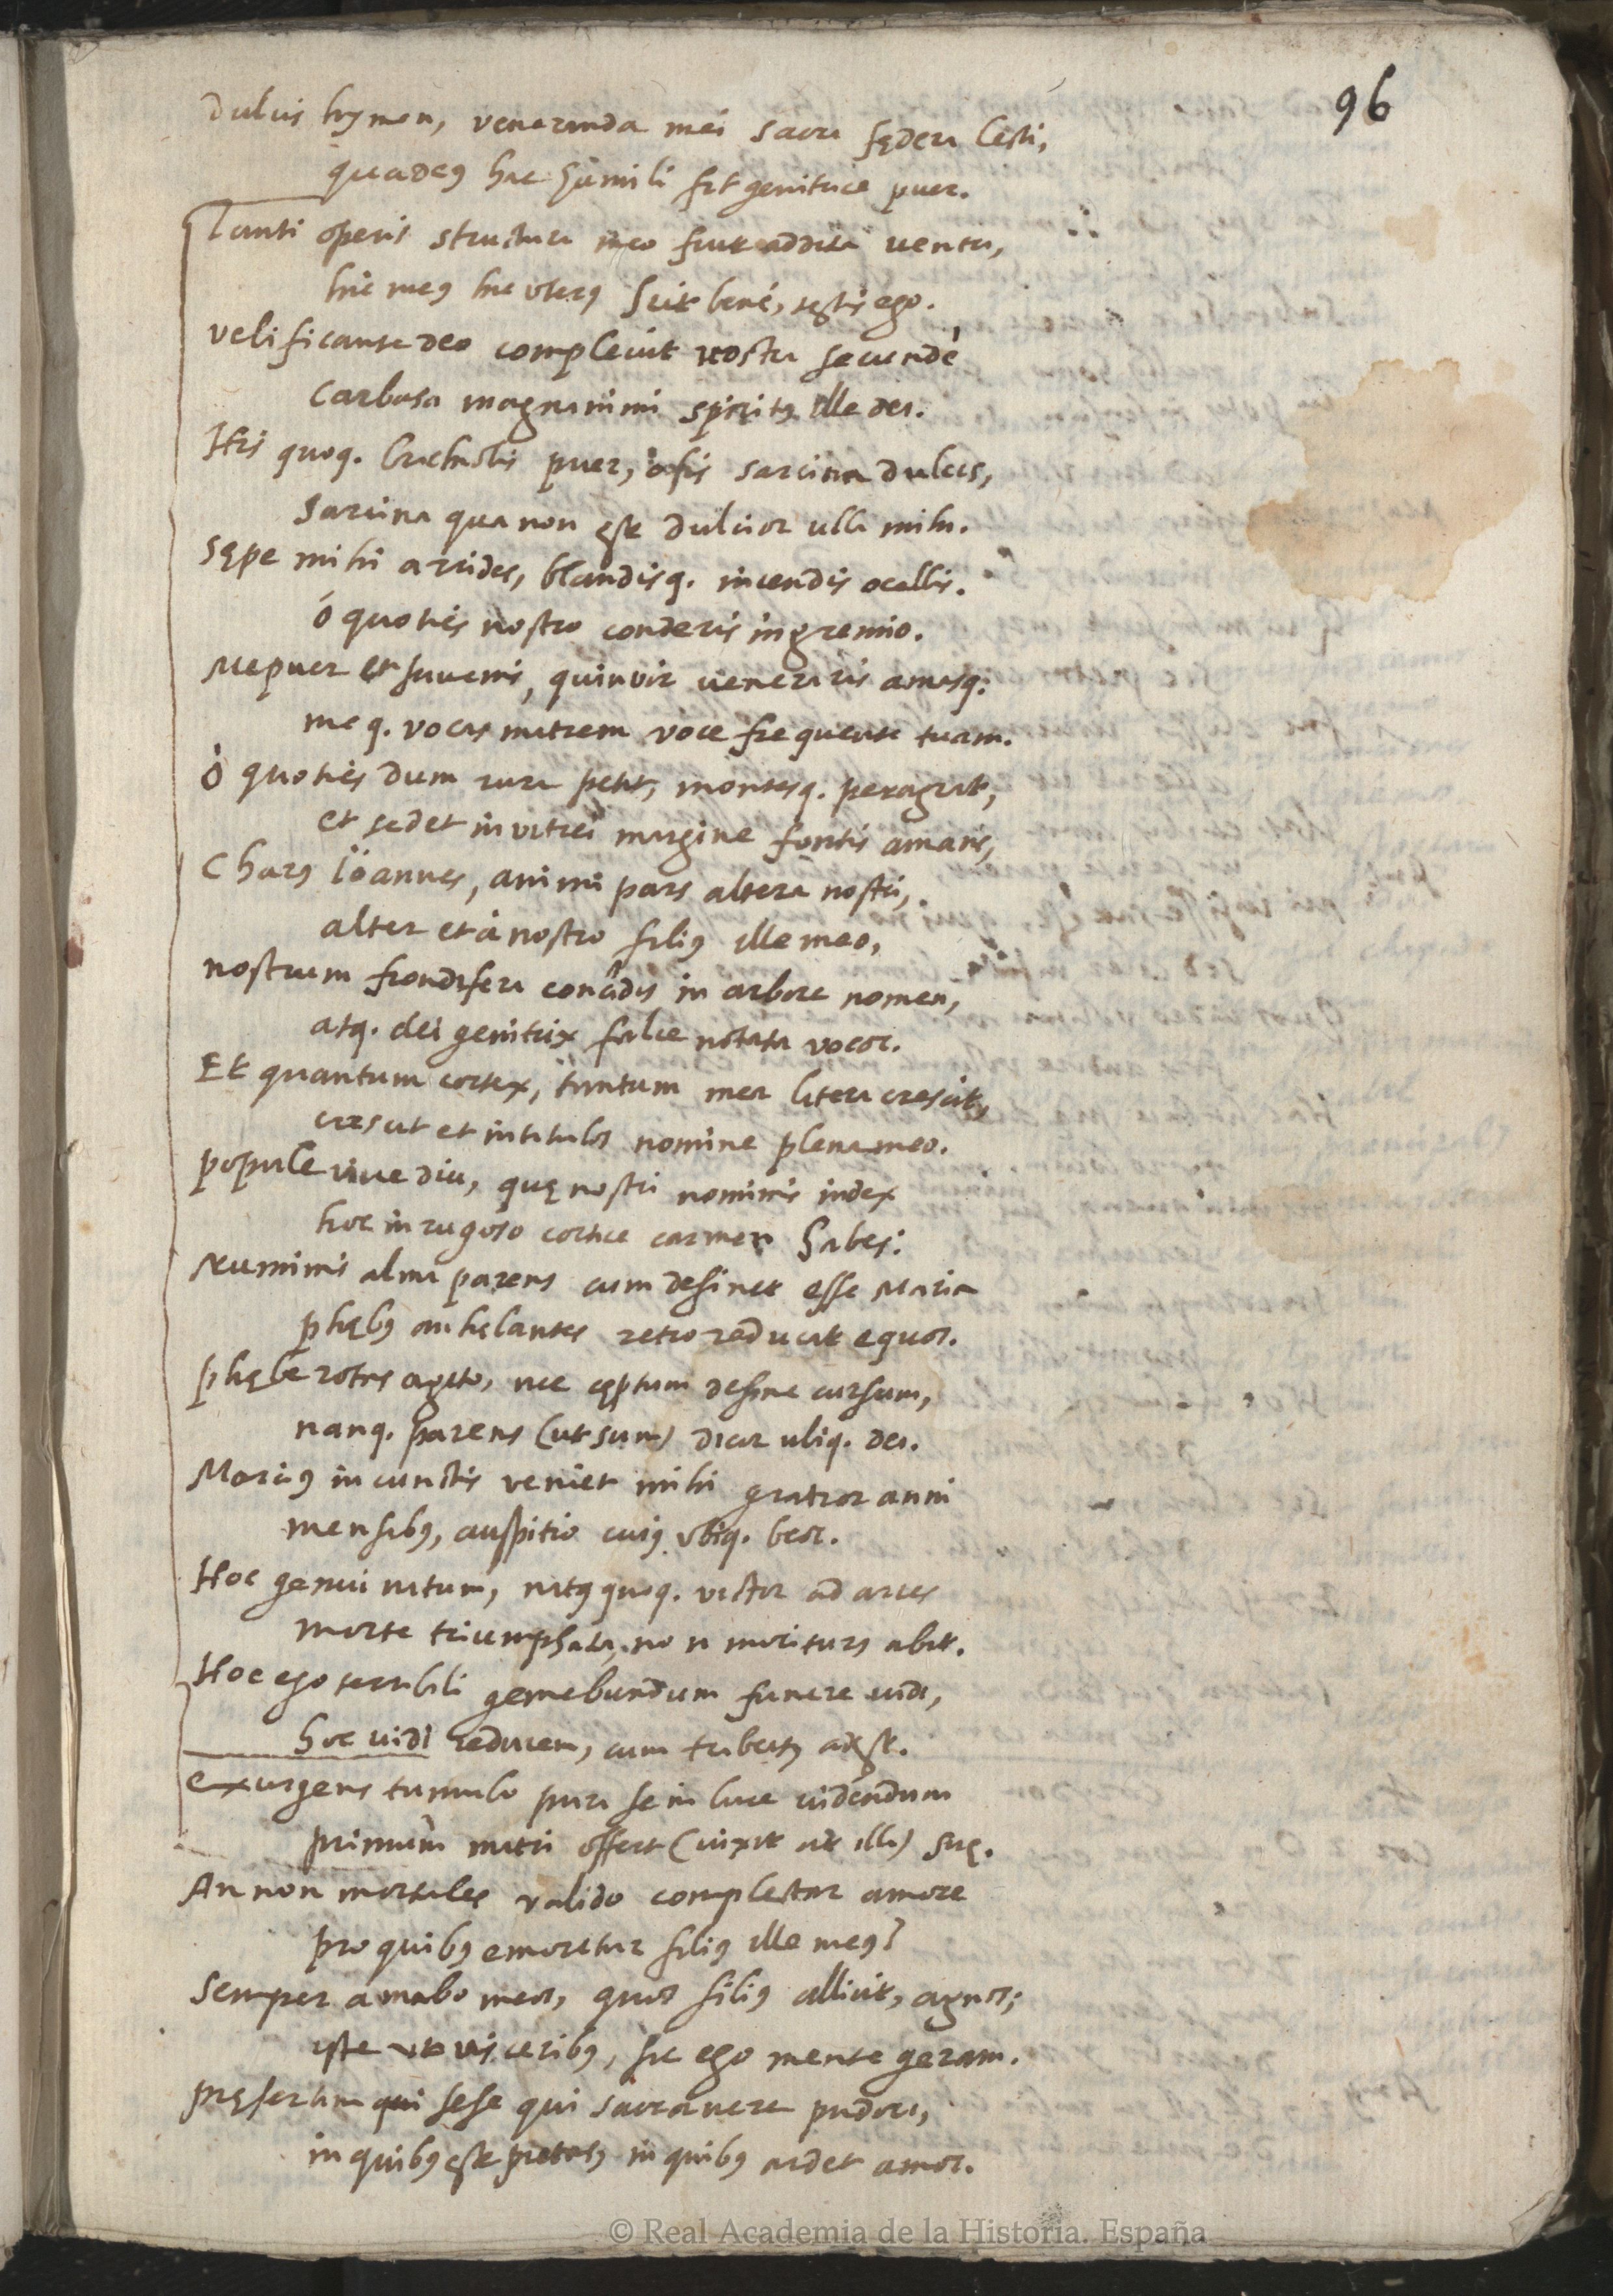 96
Dulcis hymen, veneranda mei sacra fędera lecti,
quadeꝰ hac humili fit genitrice puer.
Tanti operis structura meo fuit addita uentri,
hic meꝰ hic uterꝰ scit bené, testis ego.
velificante deo compleuit nostra secundé
Carbasa magnanimi spiritꝰ ille dei.
His quoq. lactastis puer, ó sis sarcina dulcis,
Sarcina qua non est dulcior ulla mihi.
Sępe mihi arrides, blandisq. incendis ocellis.
ó quoties nostro conderis in gremio.
Me puer et Iuuenis, quin vir ueneraris amasq:
meq. vocas matrem voce frequente tuam.
Ó quoties dum rura petit, montesq. peragrat,
et sedet in vitrei margine fontis amans,
Charꝰ Ioannes, animi pars altera nostri,
alter et á nostro filiꝰ ille meo,
nostrum frondifera concidis in arbore nomen,
atq. dei genitrix falce notata vocor.
Et quantum cortex, tantum mea litera crescit,
crescit et in titulos nomine plena meo.
popule uiue diu, quę nostri nominis index
hoc in rugoso cortice carmen habes:
Numinis alma parens cum desinet esse Maria
phębꝰ anhelantes retro reducat equos.
phębe rotas agito, nec cęptum desine cursum,
nanq. parens (ut sum) dicar ubiq. dei.
Marciꝰ in cunctis veniet mihi gratior anni
mensibꝰ, auspitio cuiꝰ ubiq. beor.
Hoc genui natum, natꝰ quoq. victor ad arces
morte triumphata, non moriturꝰ abit.
Hoc ego terribili gemebundum funere uidi,
hoc uidi reducem, cum adest.
exurgens tumulo pura se in luce uidendum
primum matri offert (uixit ut illa) suę.
An non mortales valido complectar amore
pro quibꝰ emoritur filiꝰ ille meꝰ?
Semper amabo meos, quos filiꝰ allicit, agnos;
iste ut visceribꝰ, sic ego mente geram.
pręsertim qui sese qui sacrauere pudori,
in quibꝰ est pietas, in quibꝰ ardet amor.
© Real Academia de la Historia. España